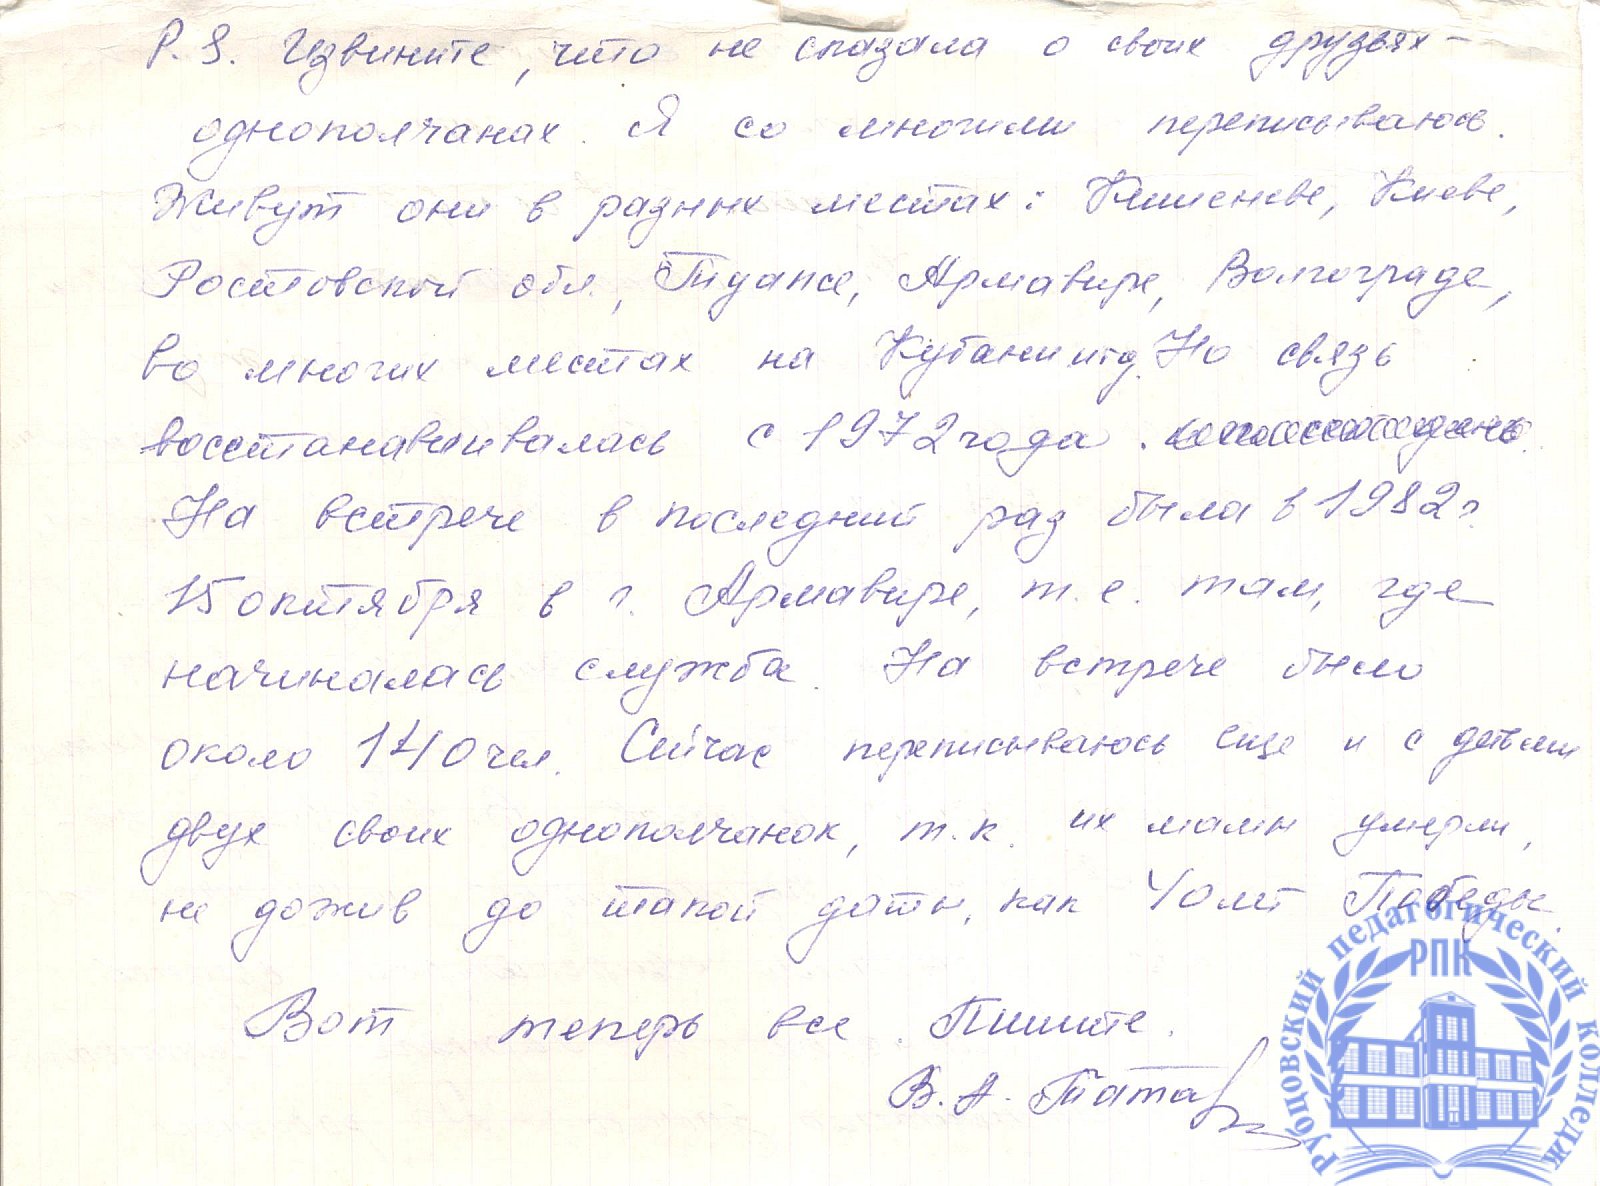 P.S. Извините, что не сказала о своих друзьях-
однополчанах. Я со многими переписываюсь.
Живут они в разных местах: Кишеневе, Киеве,
Ростовской обл., Туапсе, Армавире, Волгограде,
во многих местах на Кубани итд. Но связь
восстанавливалась с 1972 года.
На встрече в последний раз была в 1982 г.
15 октября в г. Армавире, т.е. там, где
начиналась служба. На встрече было
около 140 чел. Сейчас переписываюсь еще и с детьми
двух своих однополчанок, т.к. их мамы умерли,
не дожив до такой даты, как 40 лет Победы.
Вот теперь все. Пишите.
В. А. Татар
Рубцовский педагогический колледж
РПК